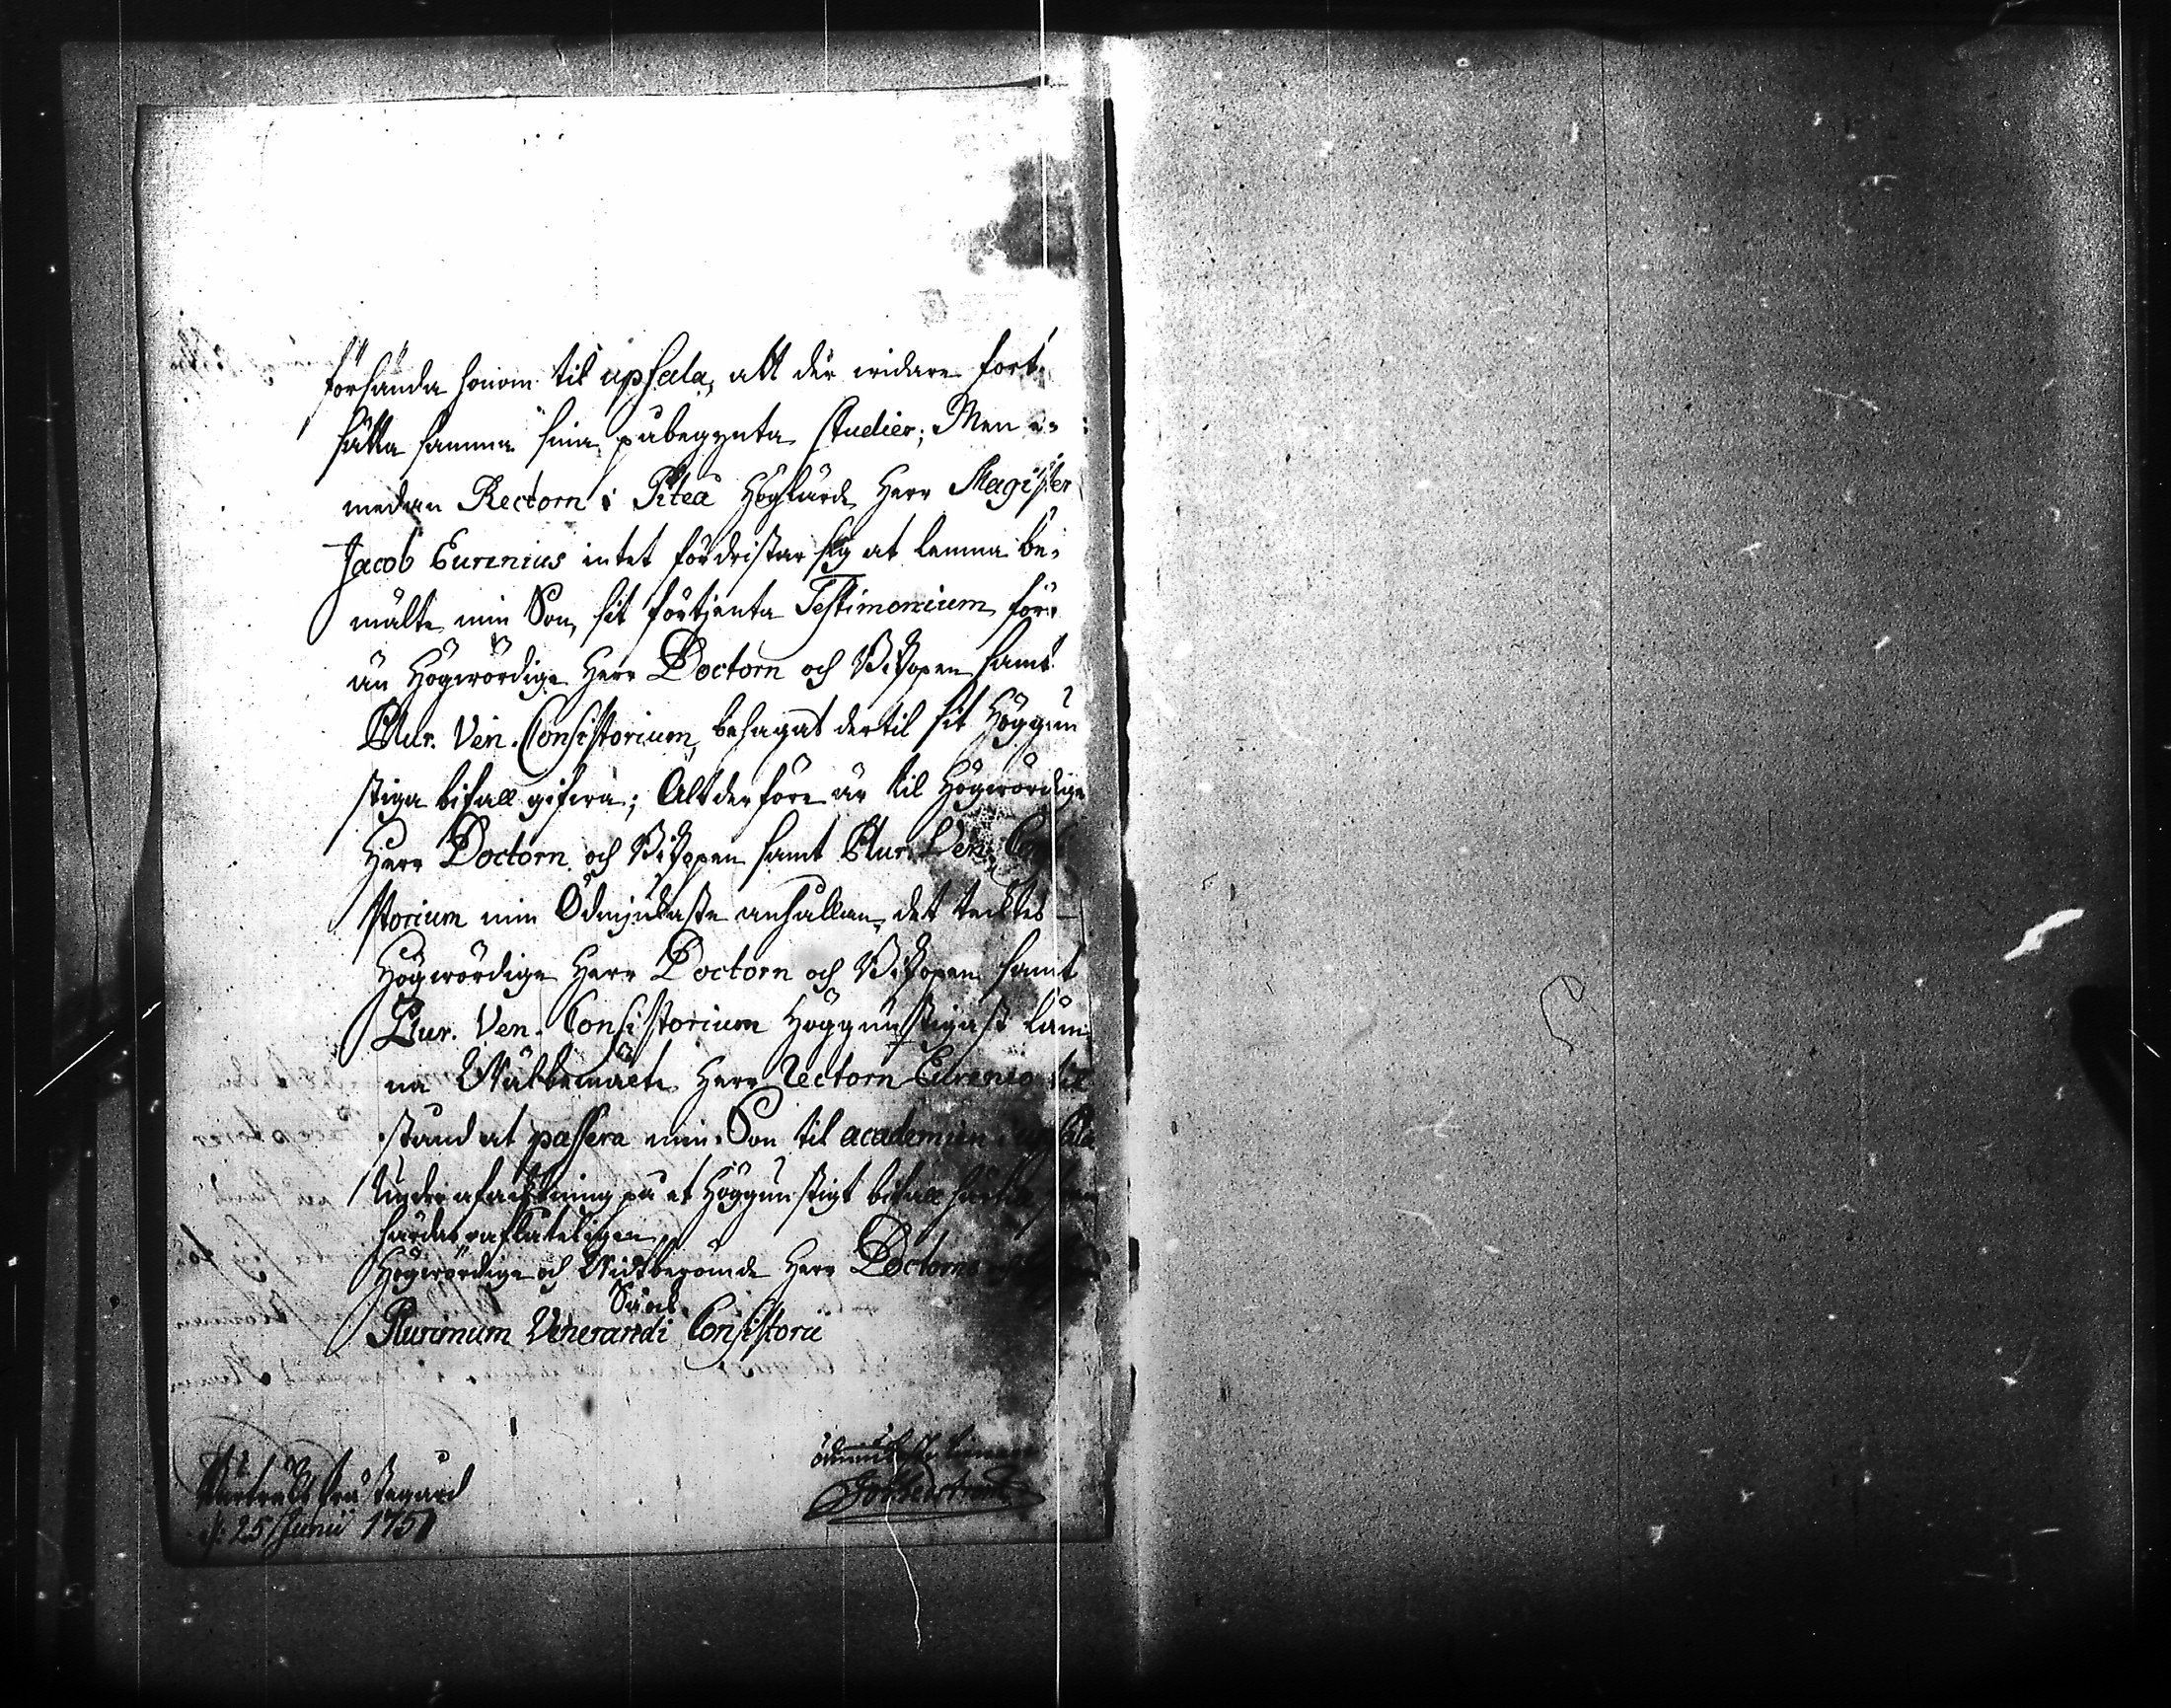 försända honom til upsala, att där widare fort
sätta samma sina påbegynta Studier; Men e-
medan Rectorn i Piteå Höglärde Herr Magister
Jacob Eurenius intet fördristar sig at lemna be-
mälte min Son, sit förtjenta Testimonium, för
än Högwördige Herr Doctorn och Biskopen samt
Plur. Ven. Consistorium, behagat dertil sit Höggun
stiga bifall gifwa; Altderföre är til Högwördige
Herr Doctorn och Biskopen samt Plur. Ven. Consi
storium min Ödmjukaste anhållan, det täcktes
Högwördige Herr Doctorn och Biskopen samt
Plur. Ven. Consistorium Höggunstigast läm
na Wälbemälte Herr Rectorn Eurenio til
stånd at passera min Son til academien i upsala
Under afwaktning på et Höggunstigt bifall
härdar oaflåteligen
Högwördige och Widtberömde Herr Doctorns och
Samt
Plurimum Venerandi Consistorii
ödmjukaste tienare
Prästegård
d: 25 Junii 1751